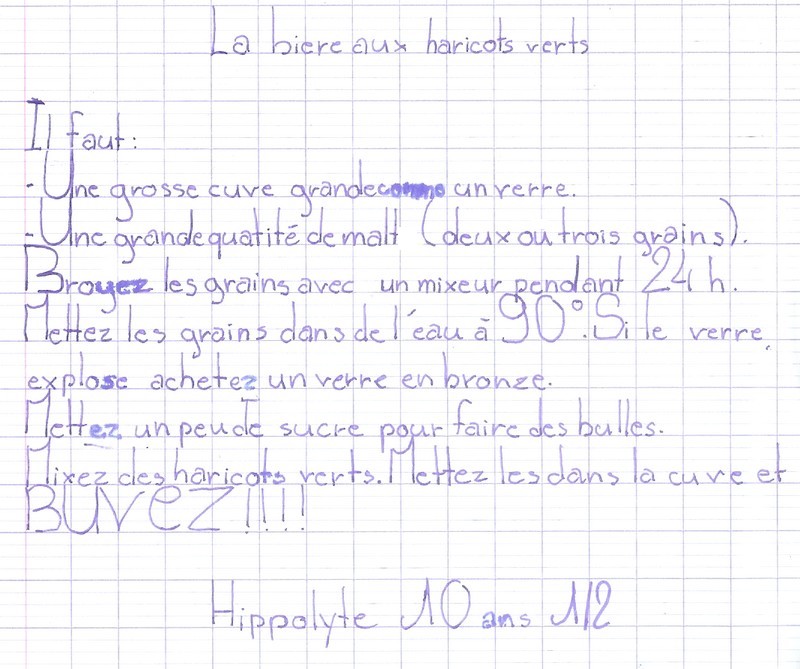 La biere aux haricots verts
Il faut:
-Une grosse cuve grande comme un verre.
-Une grande quatité de malt (deux ou trois grains).
Broyez les grains avec un mixeur pendant 24 h.
Mettez les grains dans de l'éau à 90°. Si le verre
explose achetez un verre en bronze.
Mettez un peu de sucre pour faire des bulles.
Mixez des haricots verts. Mettez les dans la cuve et
BUVEZ!!!!
Hippolyte 10 ans 1/2